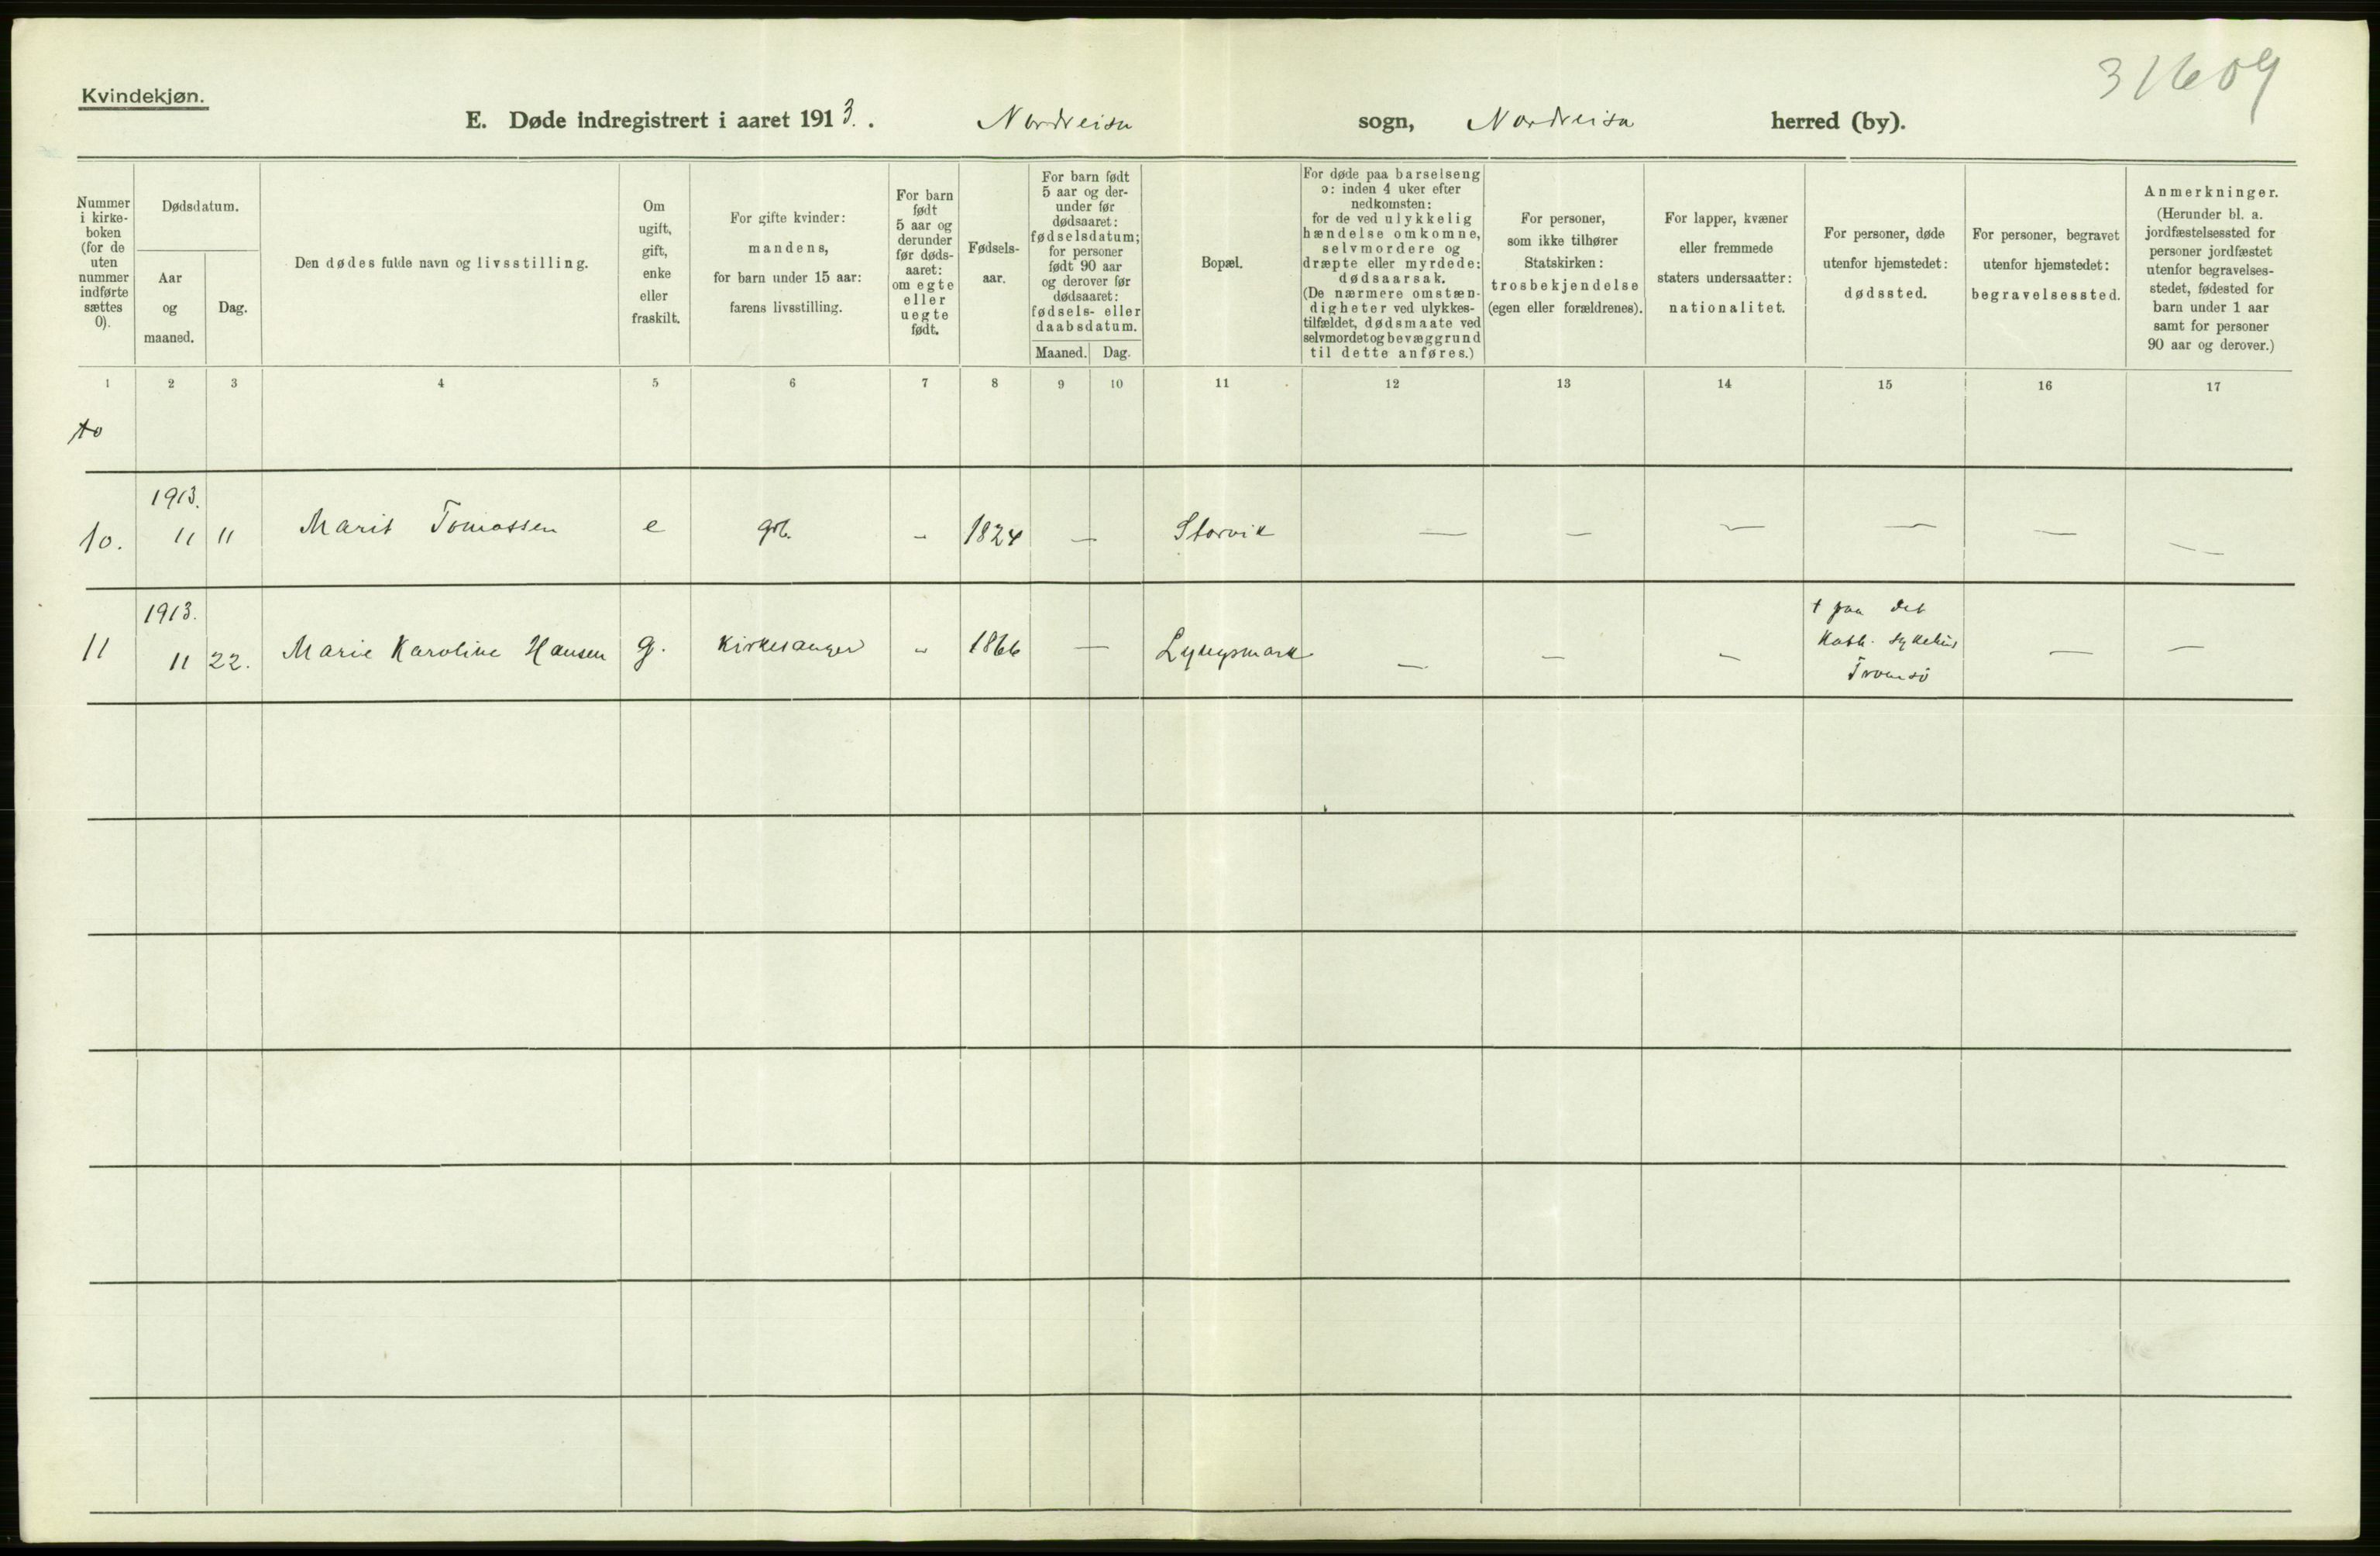 31609
Kvindekjøn.
E. Døde indregistrert i aaret 1913. Nordreisa sogn, Nordreisa herred (by).
Nummer i kirke-boken (for de uten nummer indførte sættes 0).
Dødsdatum.
Aar og maaned.
Dag.
Den dødes fulde navn og livsstilling.
Om ugift, gift, enke eller fraskilt.
For gifte kvinder: mandens, for barn under 15 aar: farens livsstilling.
For barn født 5 aar og derunder før døds-aaret: om egte eller uegte født.
Fødsels-aar.
For barn født 5 aar og der-under før dødsaaret: fødselsdatum; for personer født 90 aar og derover før dødsaaret: fødsels- eller daabsdatum.
Maaned. Dag.
Bopæl.
For døde paa barselseng ɔ: inden 4 uker efter nedkomsten: for de ved ulykkelig hændelse omkomne, selvmordere og dræpte eller myrdede: dødsaarsak. (De nærmere omstæn-digheter ved ulykkes-tilfældet, dødsmaate ved selvmordet og bevæggrund til dette anføres.)
For personer, som ikke tilhører Statskirken: trosbekjendelse (egen eller forældrenes).
For lapper, kvæner eller fremmede staters undersaatter: nationalitet.
For personer, døde utenfor hjemstedet: dødssted.
For personer, begravet utenfor hjemstedet: begravelsessted.
Anmerkninger. (Herunder bl. a. jordfæstelsessted for personer jordfæstet utenfor begravelses-stedet, fødested for barn under 1 aar samt for personer 90 aar og derover.)
1 2 3 4 5 6 7 8 9 10 11 12 13 14 15 16 17
10
1913.
10. 11 11 Marit Tomassen e grb. – 1824 — Storvik — — — — — —
1913.
11 11 22. Marie Karoline Hansen g. Kirkesanger – 1866 — Lyngsmark — — — † paa det — —
Kath. sykehus
Tromsö